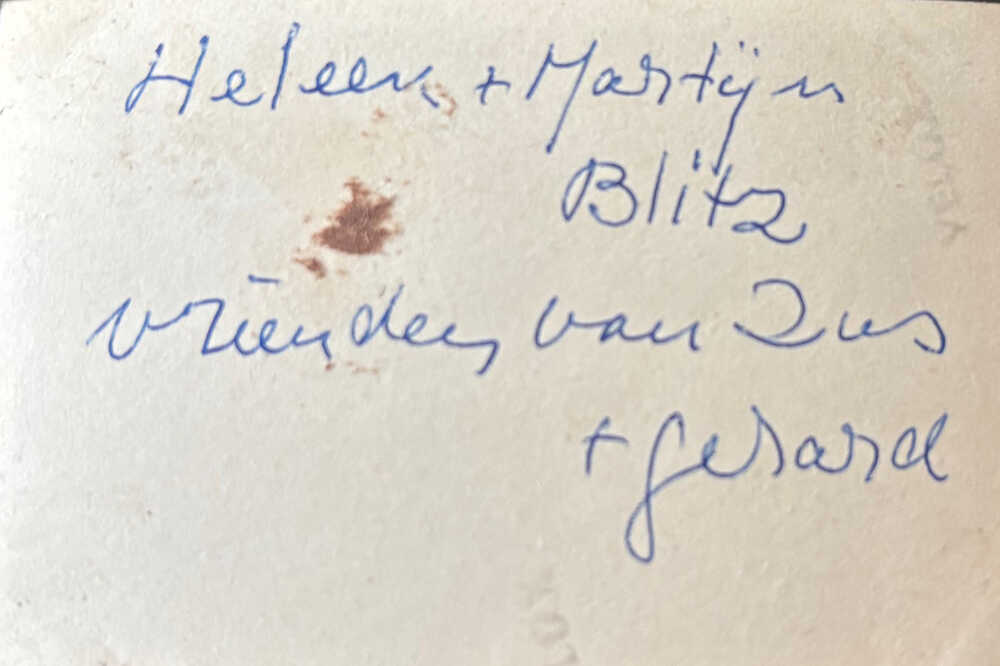 Heleen + Martijn
Blitz
vrienden van Zus
+ Gerard